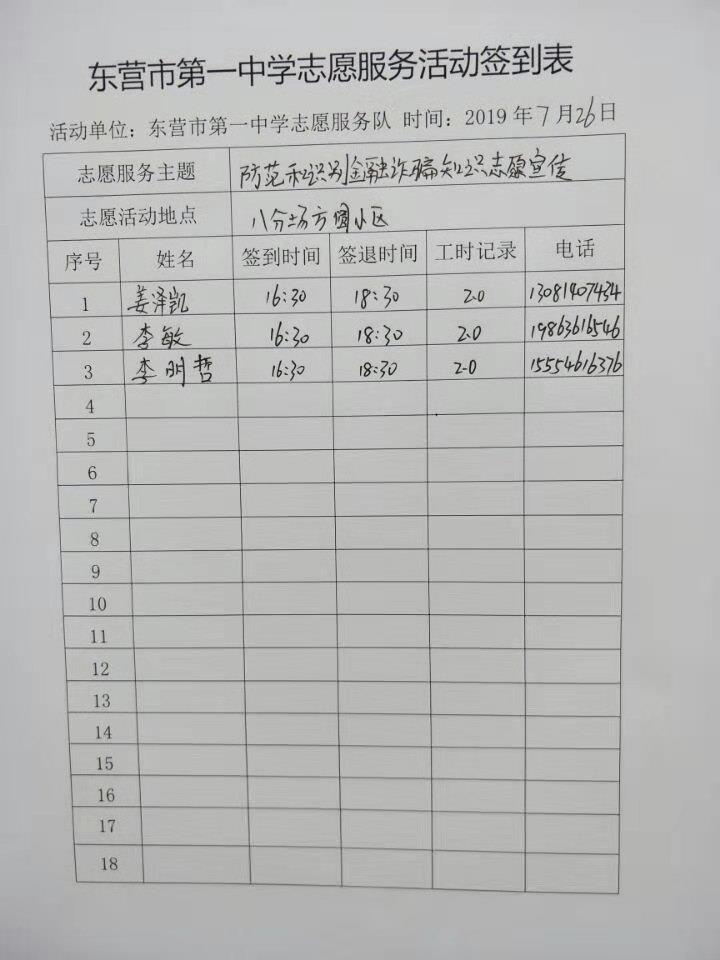 东营市第一中学志愿服务活动签到表
活动单位：东营市第一中学志愿服务队 时间：2019 年 7 月 26 日
志愿服务主题 防范和识别金融诈骗知识志愿宣传
志愿活动地点 八分场方圆小区
序号 姓名 签到时间 签退时间 工时记录 电话
1 姜泽凯 16:30 18:30 2.0 13081907434
2 李敏 16:30 18:30 2.0 19863616546
3 李明哲 16:30 18:30 2.0 15554616376
4
5
6
7
8
9
10
11
12
13
14
15
16
17
18